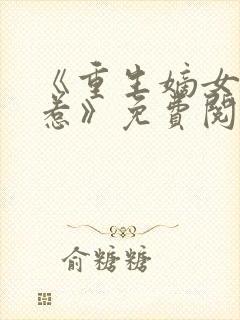 《重生嫡女
惹》免費閱
俞糖糖